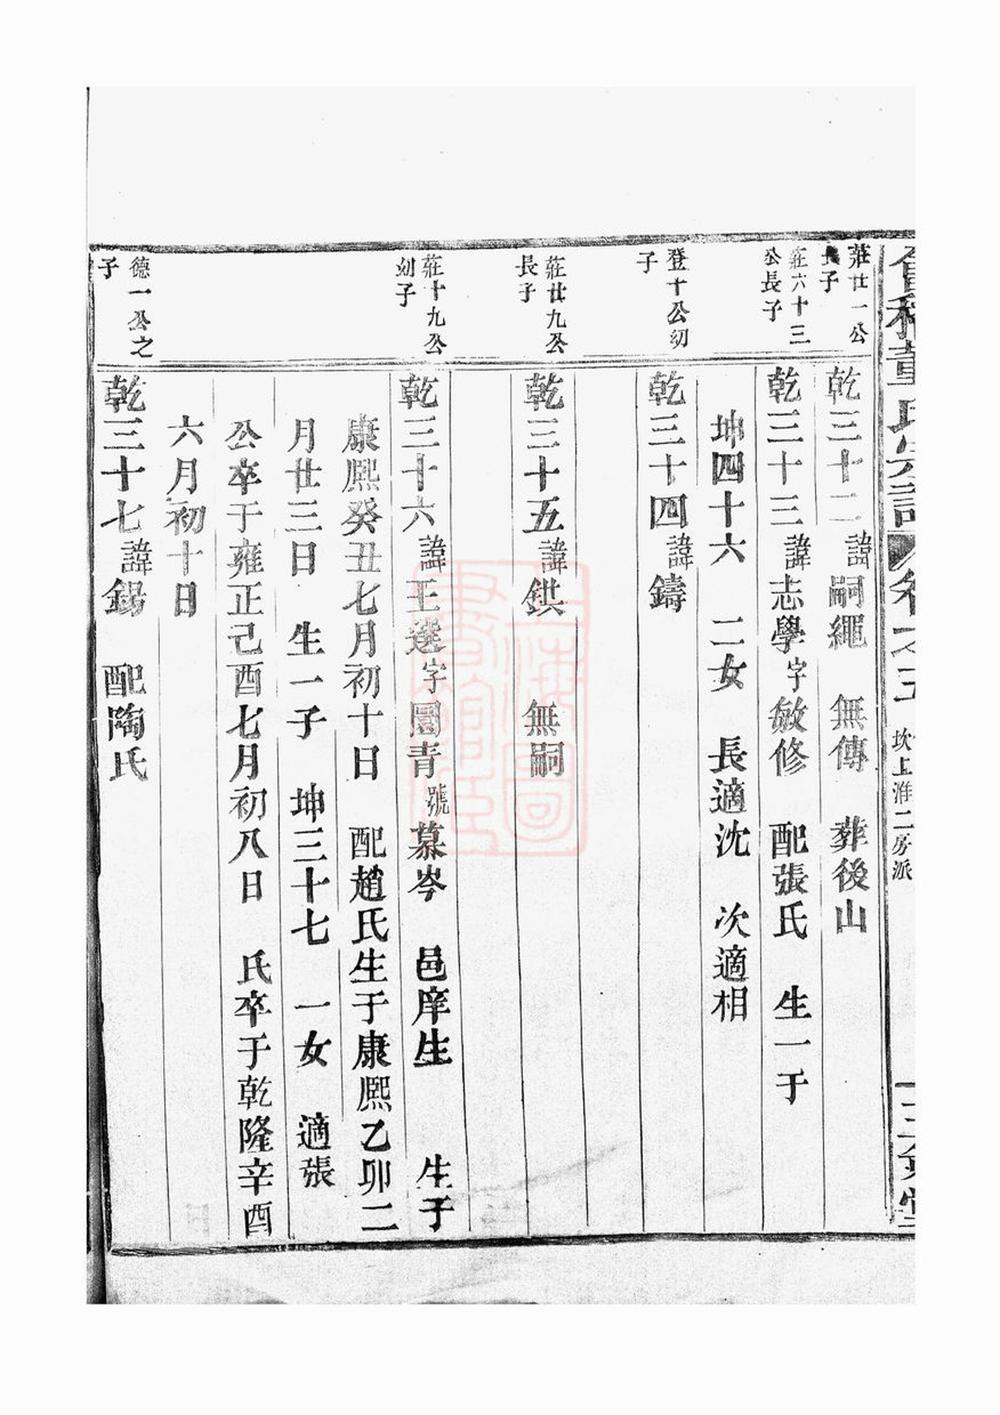 會稽董氏宗譜 卷之五 坎上淮二房派
莊廿一公
長子
乾三十二諱嗣繩 無傳 葬後山
莊六十三
公長子
乾三十三諱志學字敏修 配張氏 生一子
坤四十六 二女 長適沈 次適相
登十公幼
子
乾三十四諱鑄
莊廿九公
長子
乾三十五諱鉷 無嗣
莊十九公
幼子
乾三十六諱王選字圜青號慕岑 邑庠生 生于
康熙癸丑七月初十日 配趙氏生于康熙乙卯二
月廿三日 生一子 坤三十七 一女 適張
公卒于雍正己酉七月初八日 氏卒于乾隆辛酉
六月初十日
德一公之
子
乾三十七諱錫 配陶氏